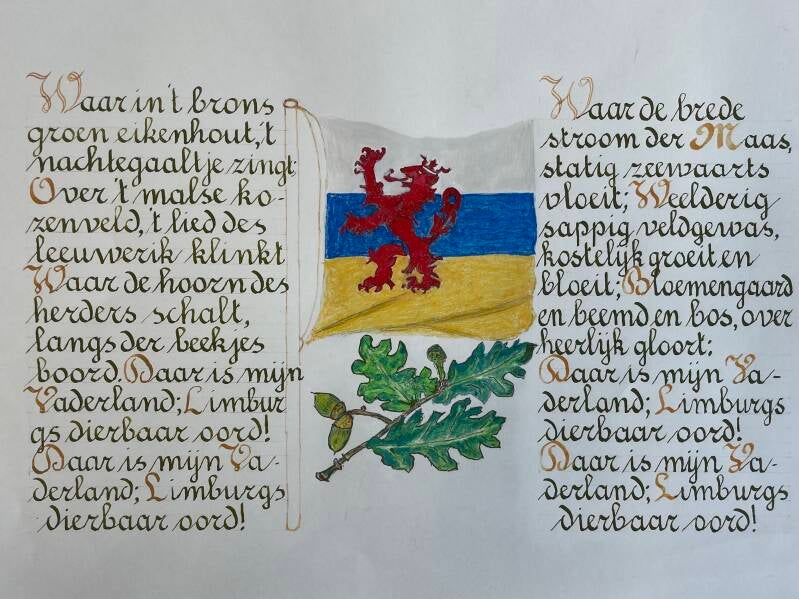 Waar in 't brons
groen eikenhout,'t
nachtegaaltje zingt
Over 't malse ko-
zenveld,'t lied des
leeuwerik klinkt
Waar de hoorn des
herders schalt,
langs der beekjes
boord. Daar is mijn
Vaderland; Limbur
gs dierbaar oord!
Daar is mijn Va-
derland; Limburgs
dierbaar oord!
Waar de brede
stroom der Maas,
statig zeewaarts
vloeit; Weelderig
sappig veldgewas,
kostelijk groeit en
bloeit; Bloemengaard
en beemd en bos, over
heerlijk gloort;
Daar is mijn Va-
derland; Limburgs
dierbaar oord!
Daar is mijn Va-
derland; Limburgs
dierbaar oord!